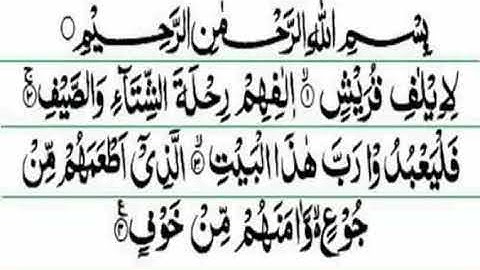 بِسْمِ اللهِ الرَّحْمٰنِ الرَّحِيْمِ
لِاِيْلٰفِ قُرَيْشٍ ۙ۱ اٖلٰفِهِمْ رِحْلَةَ الشِّتَآءِ وَالصَّيْفِ ۚ۲
فَلْيَعْبُدُوْا رَبَّ هٰذَا الْبَيْتِ ۙ۳ الَّذِيْٓ اَطْعَمَهُمْ مِّنْ
جُوْعٍ ۙ وَّاٰمَنَهُمْ مِّنْ خَوْفٍ ۴